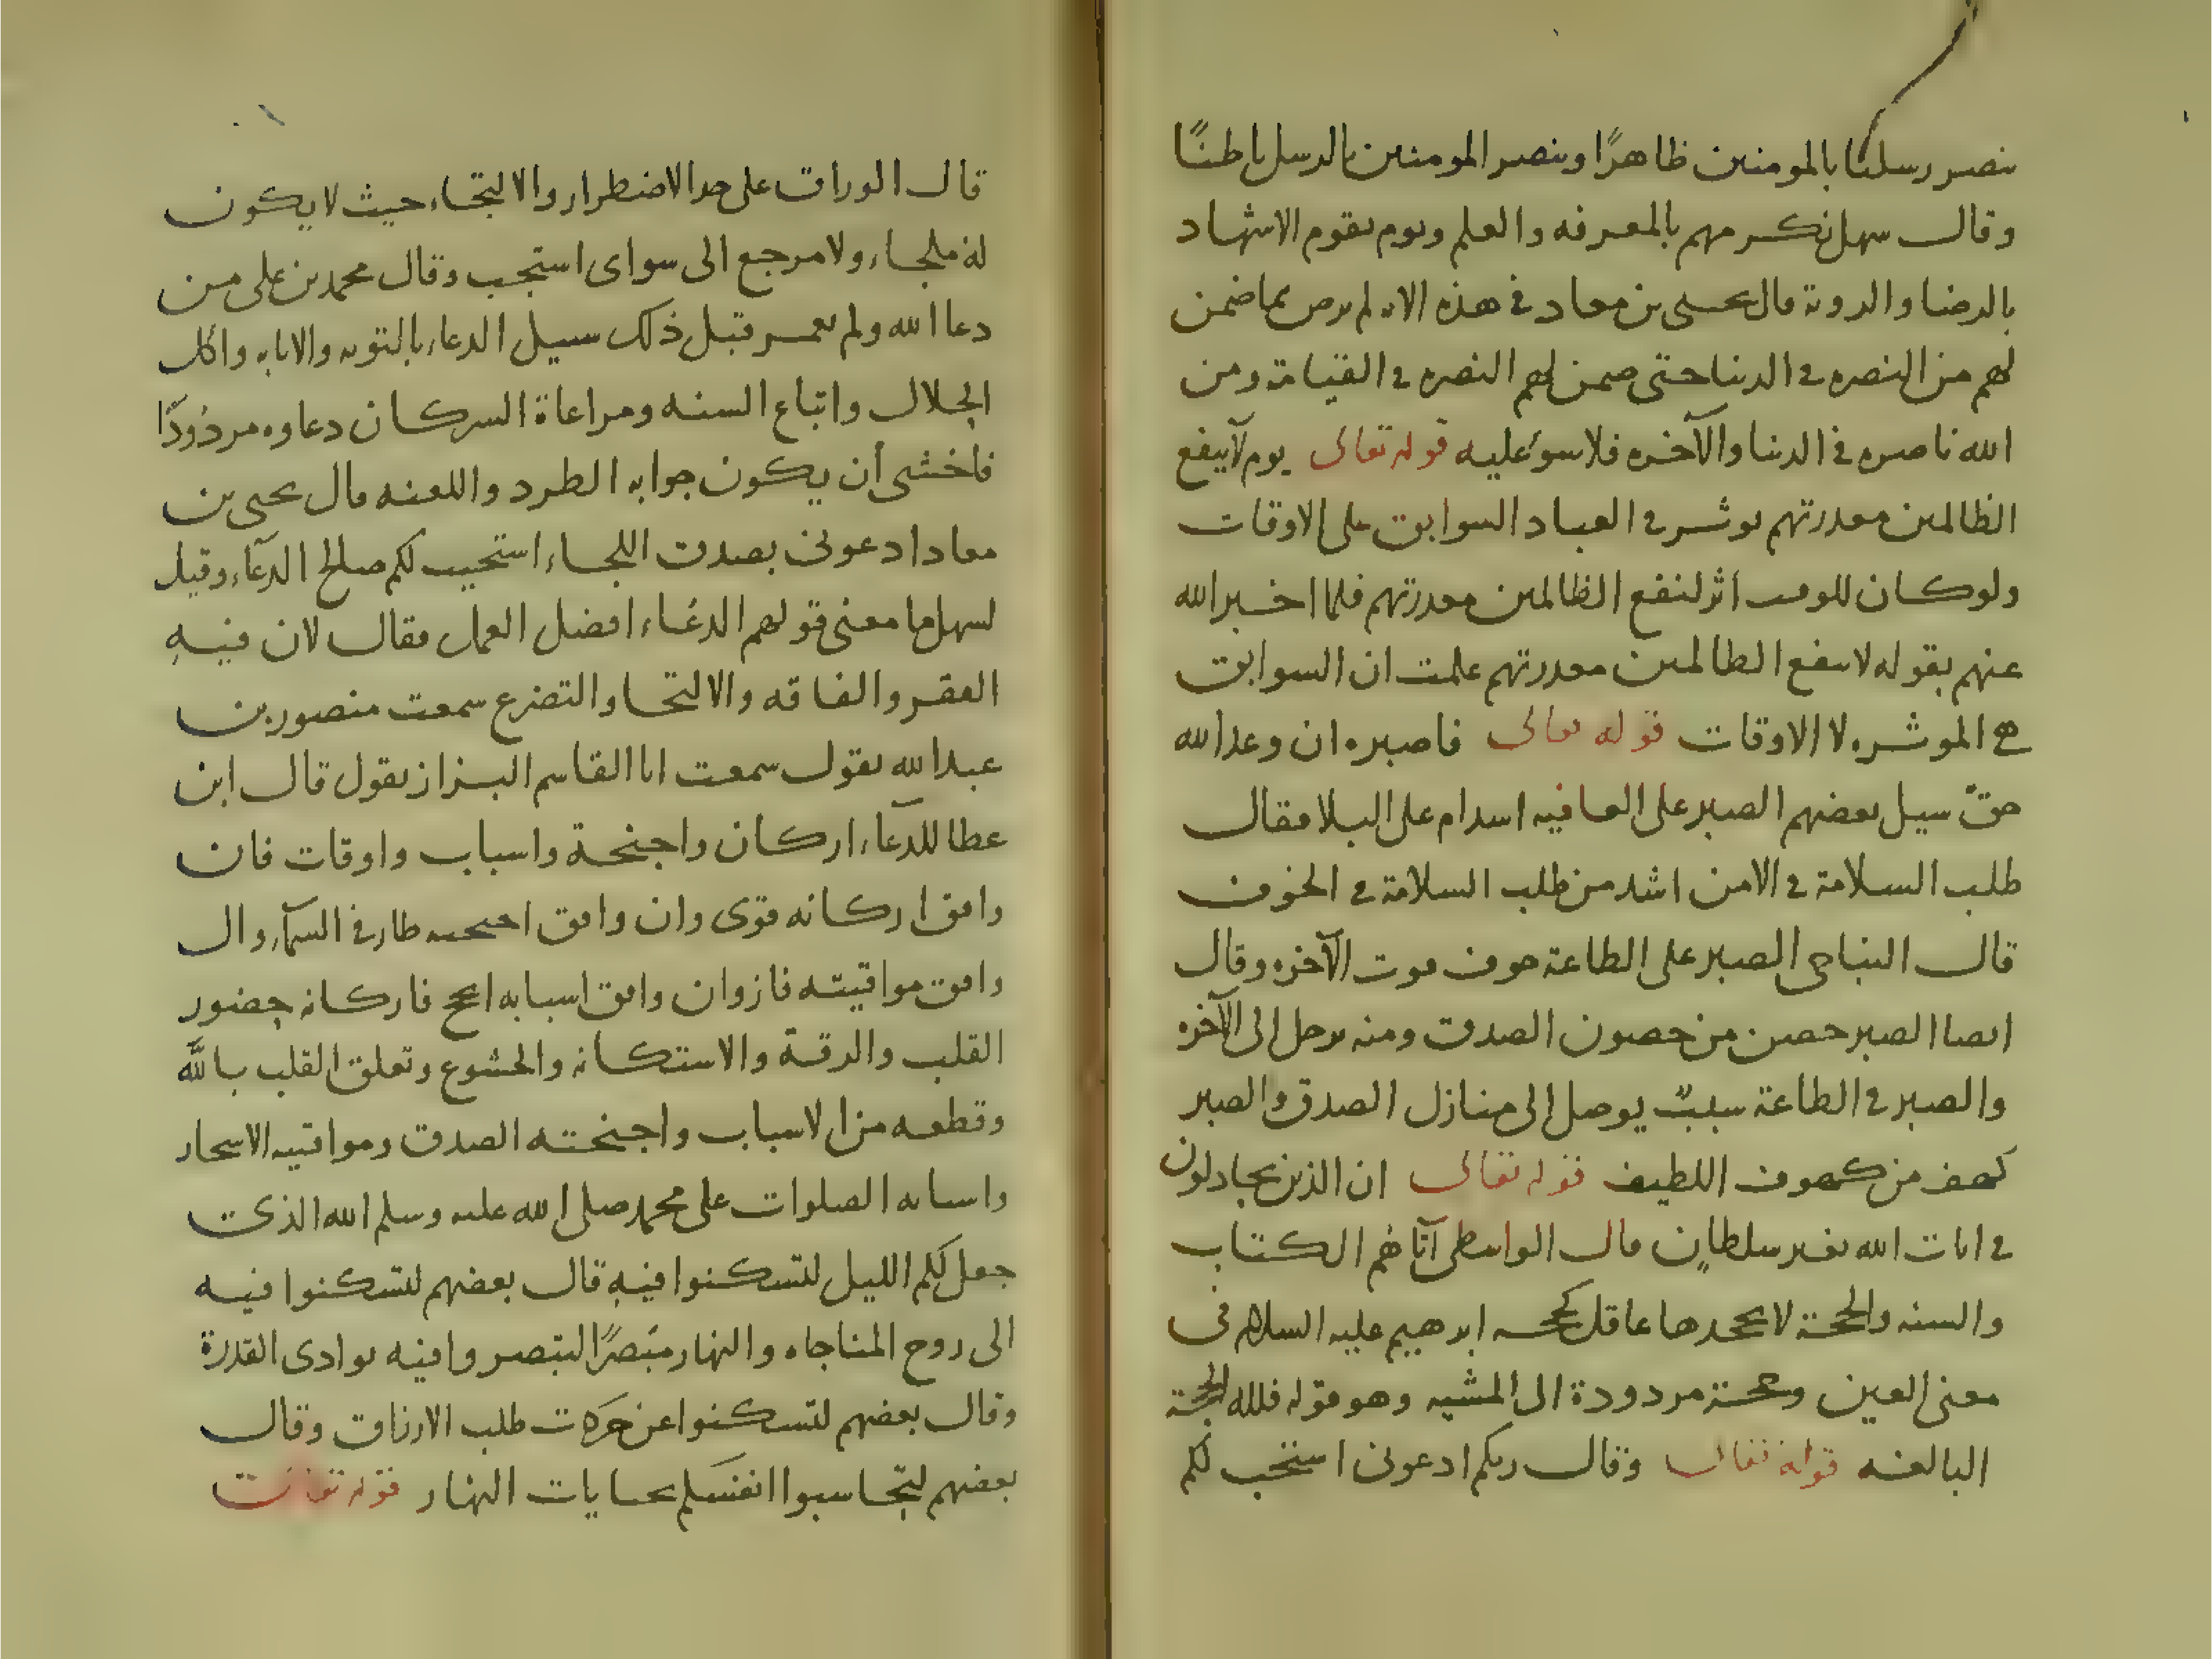 ننصر رسلنا بالمومنين ظاهرًا وننصر المومنين بالرسل باطنًا
وقال سهل نكرمهم بالمعرفه والعلم ويوم يقوم الاشهاد
بالرضا والروية قال يحيى بن معاد في هذه الايه لم يرض بما ضمن
لهم من النصره في الدنيا حتى ضمن لهم النصره في القيامة ومن
الله ناصره في الدنيا والآخره فلا سوء عليه قوله تعالى يوم لا ينفع
الظالمين معدرتهم يوثر في العباد السوابق على الاوقات
ولو كان للوقت اثر لنفع الظالمين معدرتهم فلما اخبر الله
عنهم بقوله لا ينفع الظالمين معدرتهم علمت ان السوابق
هي الموثره لا الاوقات قوله تعالى فاصبر ان وعد الله
حق سيل بعضهم الصبر على العافيه اشد ام على البلا فقال
طلب السلامة في الامن اشد من طلب السلامة في الخوف
قال النباجي الصبر على الطاعة خوف فوت الآخره وقال
ايضا الصبر حصن من حصون الصدق ومنه يرحل الى الآخره
والصبر في الطاعة سبب يوصل الى منازل الصدق والصبر
كهف من كهوف اللطيف قوله تعالى ان الذين يجادلون
في ايات الله بغير سلطان قال الواسطي آتاهم الكتاب
والسنه والحجة لا يجحدها عاقل كحجه ابرهيم عليه السلام في
معنى العين وحجة مردودة الى المشيه وهو قوله فلله الحجة
البالغه قوله تعالى وقال ربكم ادعوني استجب لكم
قال الوراق على حد الاضطرار والالتجاء حيث لا يكون
له ملجاء ولا مرجع الى سواى استجب وقال محمد بن على من
دعا الله ولم يعمر قبل ذلك سبيل الدعاء بالتوبه والانابه واكل
الحلال واتباع السنه ومراعاة السر كان دعاوه مردودًا
فاخشى أن يكون جوابه الطرد واللعنه قال يحيى بن
معاد ادعوني بصدق اللجاء استجيب لكم صالح الدعاء وقيل
لسهل ما معنى قولهم الدعاء افضل العمل فقال لان فيه
الفقر والفاقه والالتجا والتضرع سمعت منصور بن
عبد الله يقول سمعت ابا القاسم البزاز يقول قال ابن
عطا للدعاء اركان واجنحة واسباب واوقات فان
وافق اركانه قوى وان وافق اجنحته طار في السماء وان
وافق مواقيته فاز وان وافق اسبابه انجح فاركانه حضور
القلب والرقة والاستكانه والخشوع وتعلق القلب بالله
وقطعه من الاسباب واجنحته الصدق ومواقيته الاسحار
واسبابه الصلوات على محمد صلى الله عليه وسلم الله الذي
جعل لكم الليل لتسكنوا فيه قال بعضهم لتسكنوا فيه
الى روح المناجاه والنهار مبصرًا لتبصروا فيه بوادى القدرة
وقال بعضهم لتسكنوا عن حركات طلب الارزاق وقال
بعضهم لتحاسبوا انفسكم بجنايات النهار قوله تعالى